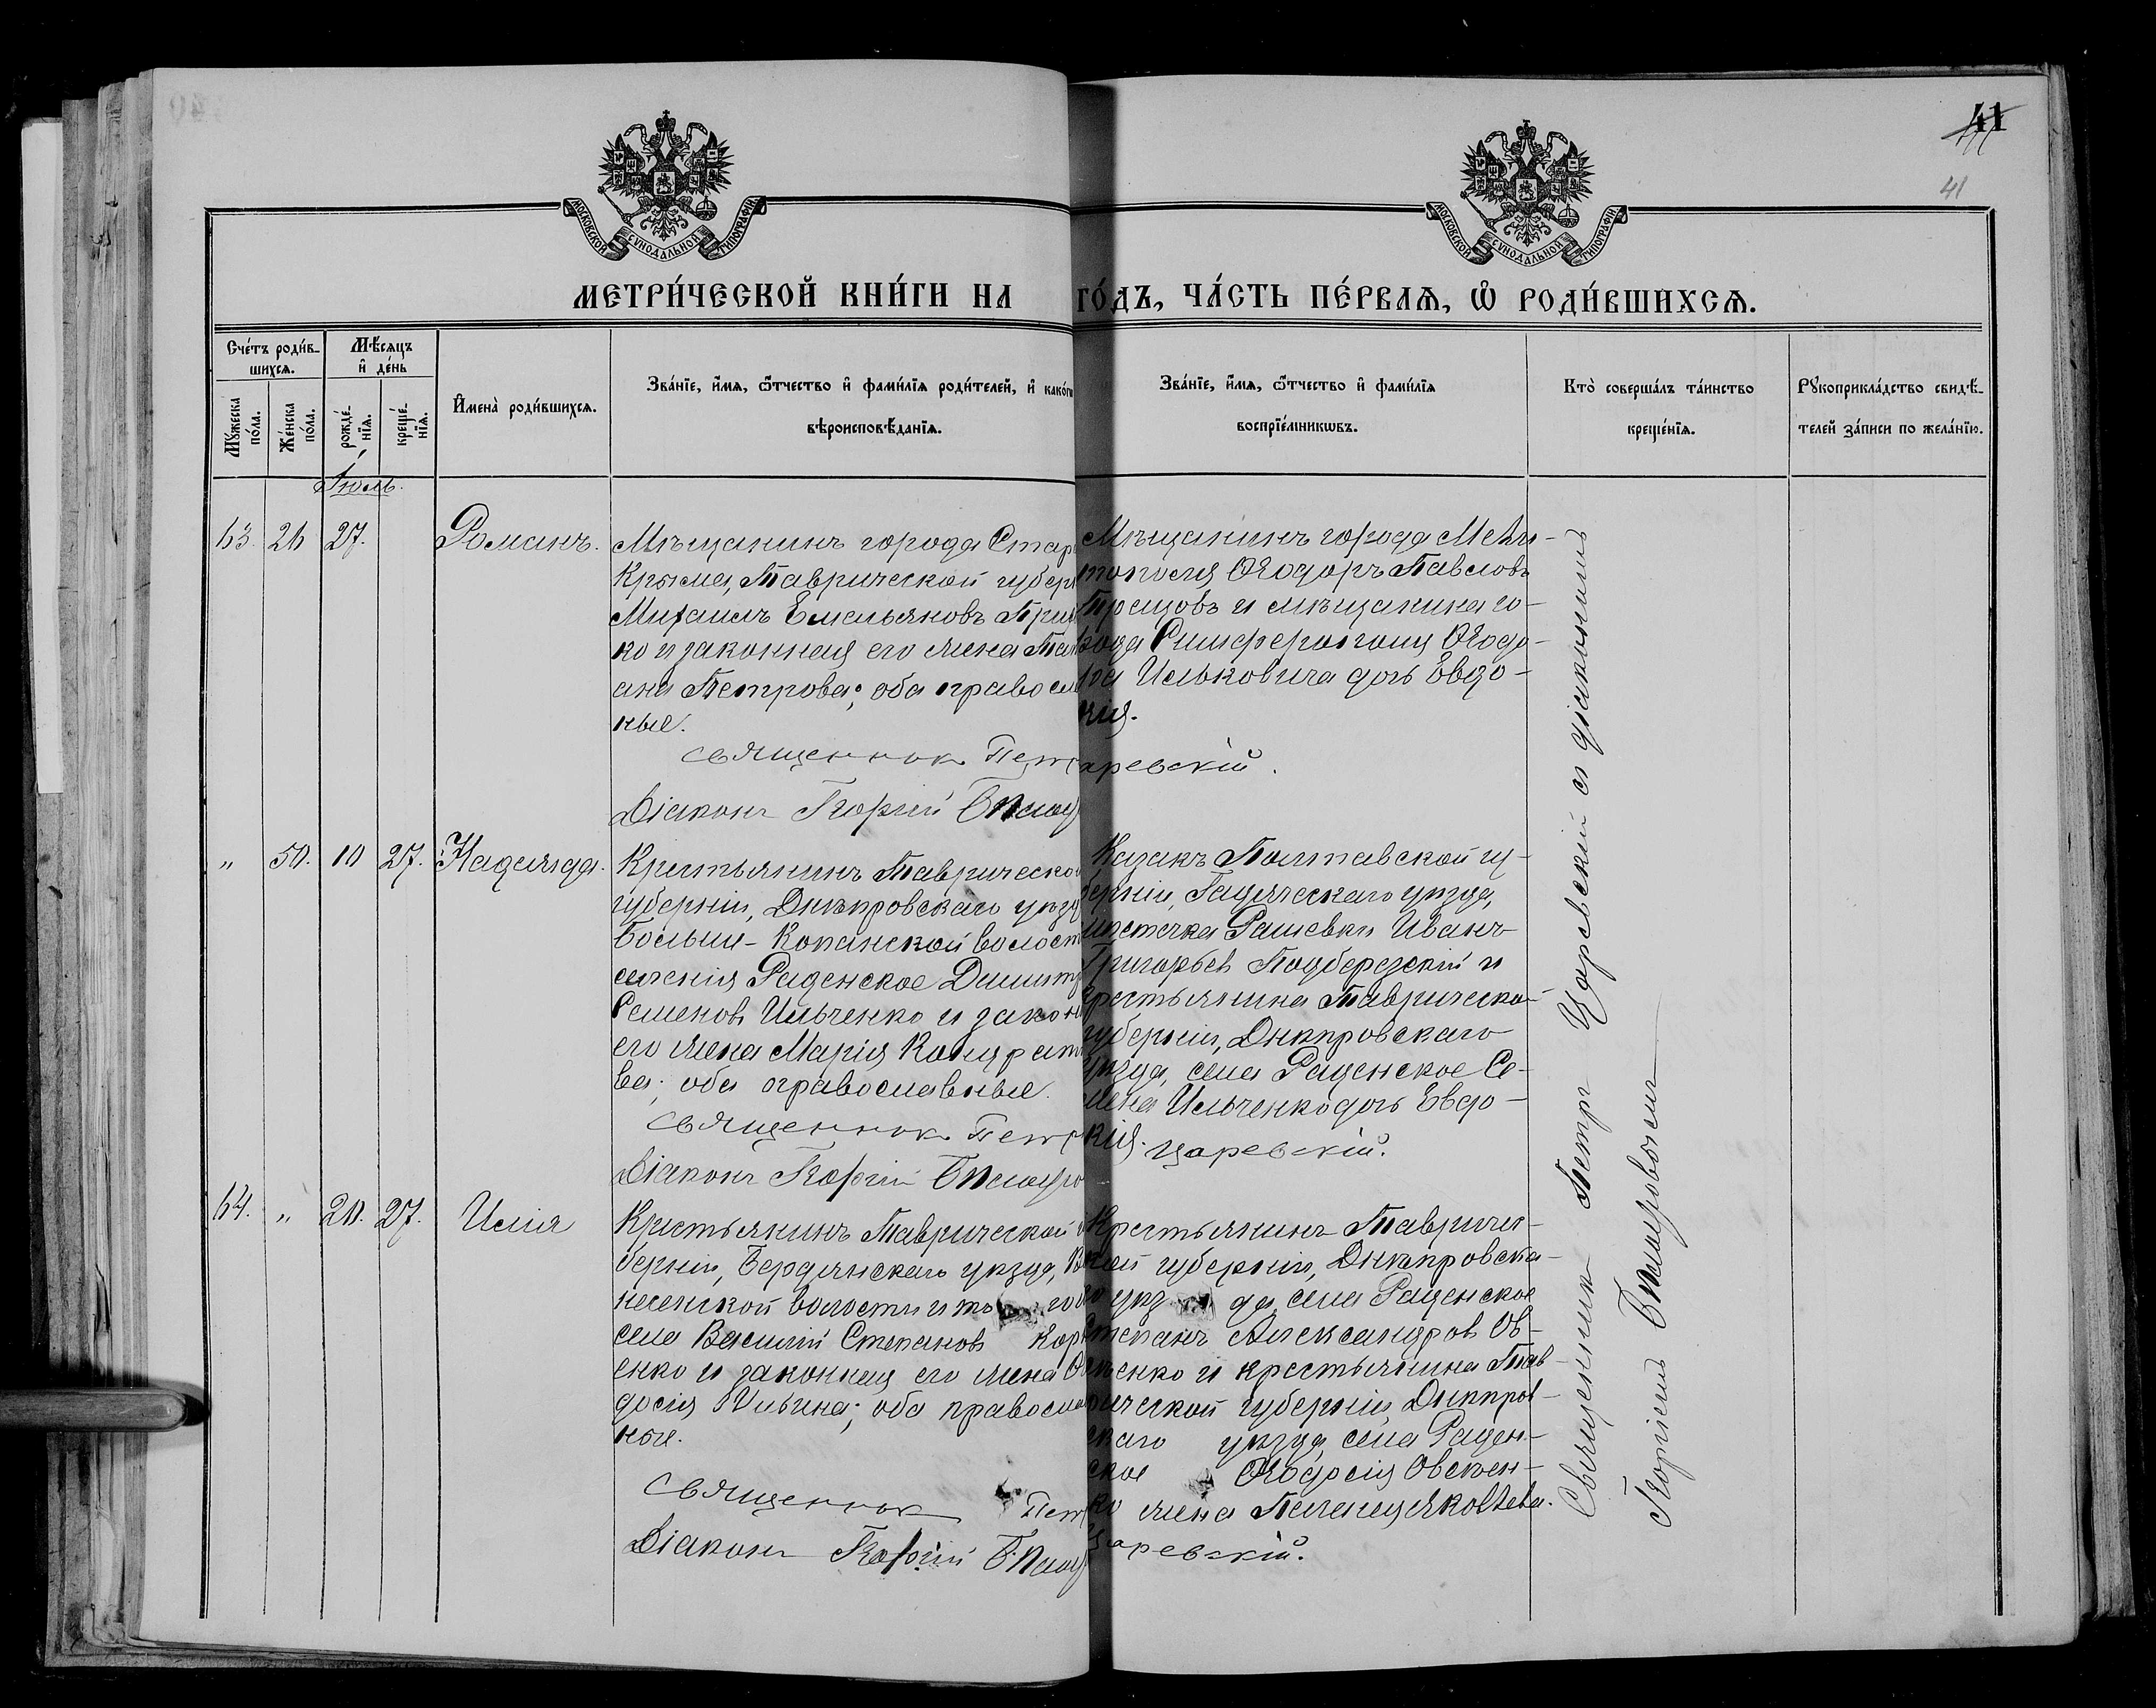 41
41
МОСКОВСКОЙ СУНОДАЛЬНОЙ ТИПОГРАФІИ
МОСКОВСКОЙ СУНОДАЛЬНОЙ ТИПОГРАФІИ
МЕТРИ́ЧЕСКОЙ КНИ́ГИ НА
ГО́ДЪ, ЧА́СТЬ ПЕ́РВАЯ, Ѡ РОДИ́ВШИХСЯ.
Сче́тъ роди́в-
шихся.
Мѣ́сяцъ
и де́нь
Му́жеска по́ла.
Же́нска по́ла.
рожде́-нїя.
креще́-нїя.
Имена̀ роди́вшихся.
Зва́нїе, и́мя, ѻ́тчество и фами́лїя роди́телей, и како́гw
вѣроисповѣ́данїя.
Зва́нїе, и́мя, ѻ́тчество и фами́лїя
воспрїе́мникwвъ.
Кто̀ соверша́лъ та́инство
креще́нїя.
Рукоприкла́дство свидѣ́-
телей за́писи по жела́нїю.
Іюль.
63. 26 27. Романъ.
Мѣщанинъ города Стар
Крыма, Таврической губер
Михаилъ Емельяновъ При
ко и законная его жена Та
ана Петрова; оба правосл
ные.
Священник Петр
Діаконъ Георгій
Мѣщанинъ города Мели-
тополя Ѳеодоръ Павловъ
и мѣщанина го-
рода Симферополя Ѳеодо-
ра Ильковича дочь Евдо-
кия.
аревскій.
„ 50. 10 27. Надежда.
Крестьянинъ Таврическо
губерніи, Днѣпровскаго уѣзд
Больше-Копанской волост
селенія Раденское Димитр
Семеновъ Ильченко и закон
его жена Марія Кондрать
ва; оба православные.
Священник Петр
Діаконъ Георгій
Казакъ Полтавской гу-
берніи, Гадяческаго уѣзда,
мѣстечка Рашевки Иванъ
Григорьевъ Подберезскій и
крестьянина Таврической
губерніи, Днѣпровскаго
уѣзда, села Раденское Се-
мена Ильченко дочь Евдо-
кия.
Царевскій.
64. „ 20. 27. Илія
Крестьянинъ Таврической
берніи, Бердянскаго уѣзда, В
несенской волости и то го
села Василій Степановъ Кор
енко и законная его жена Ѳ
досія Ильина; оба правосла
ные.
Священник Петр
Діаконъ Георгій
Крестьянинъ Тавриче-
ской губерніи, Днѣпровска-
го уѣз да, села Раденское
Степанъ Александровъ Ов-
сѣенко и крестьянина Тав-
рической губерніи, Днѣпров-
скаго уѣзда, села Раден-
ское Ѳеодосія Овсѣен-
ко жена Пелагея Яковлева.
Царевскій.
Священникъ Петръ Царевскій съ діакономъ
Георгіемъ